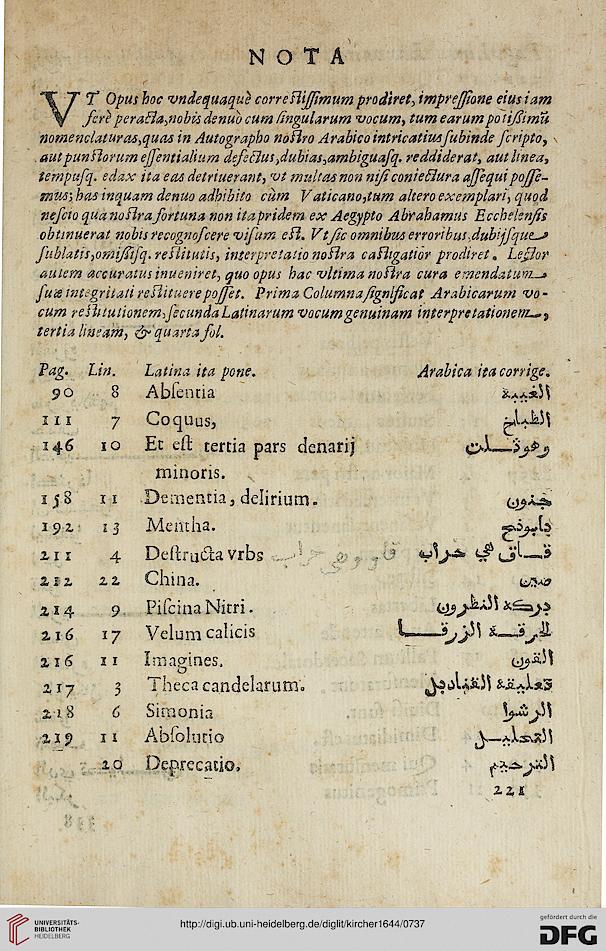 NOTA
VT Opus hoc vndequaquè correctissimum prodiret, impressione eius iam
ferè peracta, nobis denuò cum singularum vocum, tum earum potissimũ
nomenclaturas, quas in Autographo nostro Arabico intricatius subinde scripto,
aut punctorum essentialium defectus, dubias, ambiguasq. reddiderat, aut linea,
tempusq. edax ita eas detriuerant, vt multas non nisi coniectura assequi posse-
mus; has inquam denuo adhibito cùm Vaticano, tum altero exemplari, quod
nescio qua nostra fortuna non ita pridem ex Aegypto Abrahamus Ecchelensis
obtinuerat nobis recognoscere visum est. Vt sic omnibus erroribus, dubijsque
sublatis, omissisq. restitutis, interpretatio nostra castigatiòr prodiret. Lector
autem accuratus inueniret, quo opus hac vltima nostra cura emendatum
suæ integritati restituere posset. Prima Columna significat Arabicarum vo-
cum restitutionem, secunda Latinarum vocum genuinam interpretationem,
tertia lineam, & quarta fol.
Pag. Lin. Latina ita pone. Arabica ita corrige.
90 8 Absentia الغيبة
111 7 Coquus, الطباخ
146 10 Et est tertia pars denarij وهو ثلث
minoris.
158 11 Dementia, delirium. جنون
192 13 Mentha. بابونج
211 4 Destructa vrbs هي خراب
212 22 China. صين
214 9 Piscina Nitri. بركة النطرون
216 17 Velum calicis الزرقا
216 11 Imagines. القون
217 3 Theca candelarum. تعليقة القناديل
218 6 Simonia الرشوا
219 11 Absolutio التحليل
20 Deprecatio. الترحيم
221
UNIVERSITÄTS-
BIBLIOTHEK
HEIDELBERG
http://digi.ub.uni-heidelberg.de/diglit/kircher1644/0737
gefördert durch die
DFG